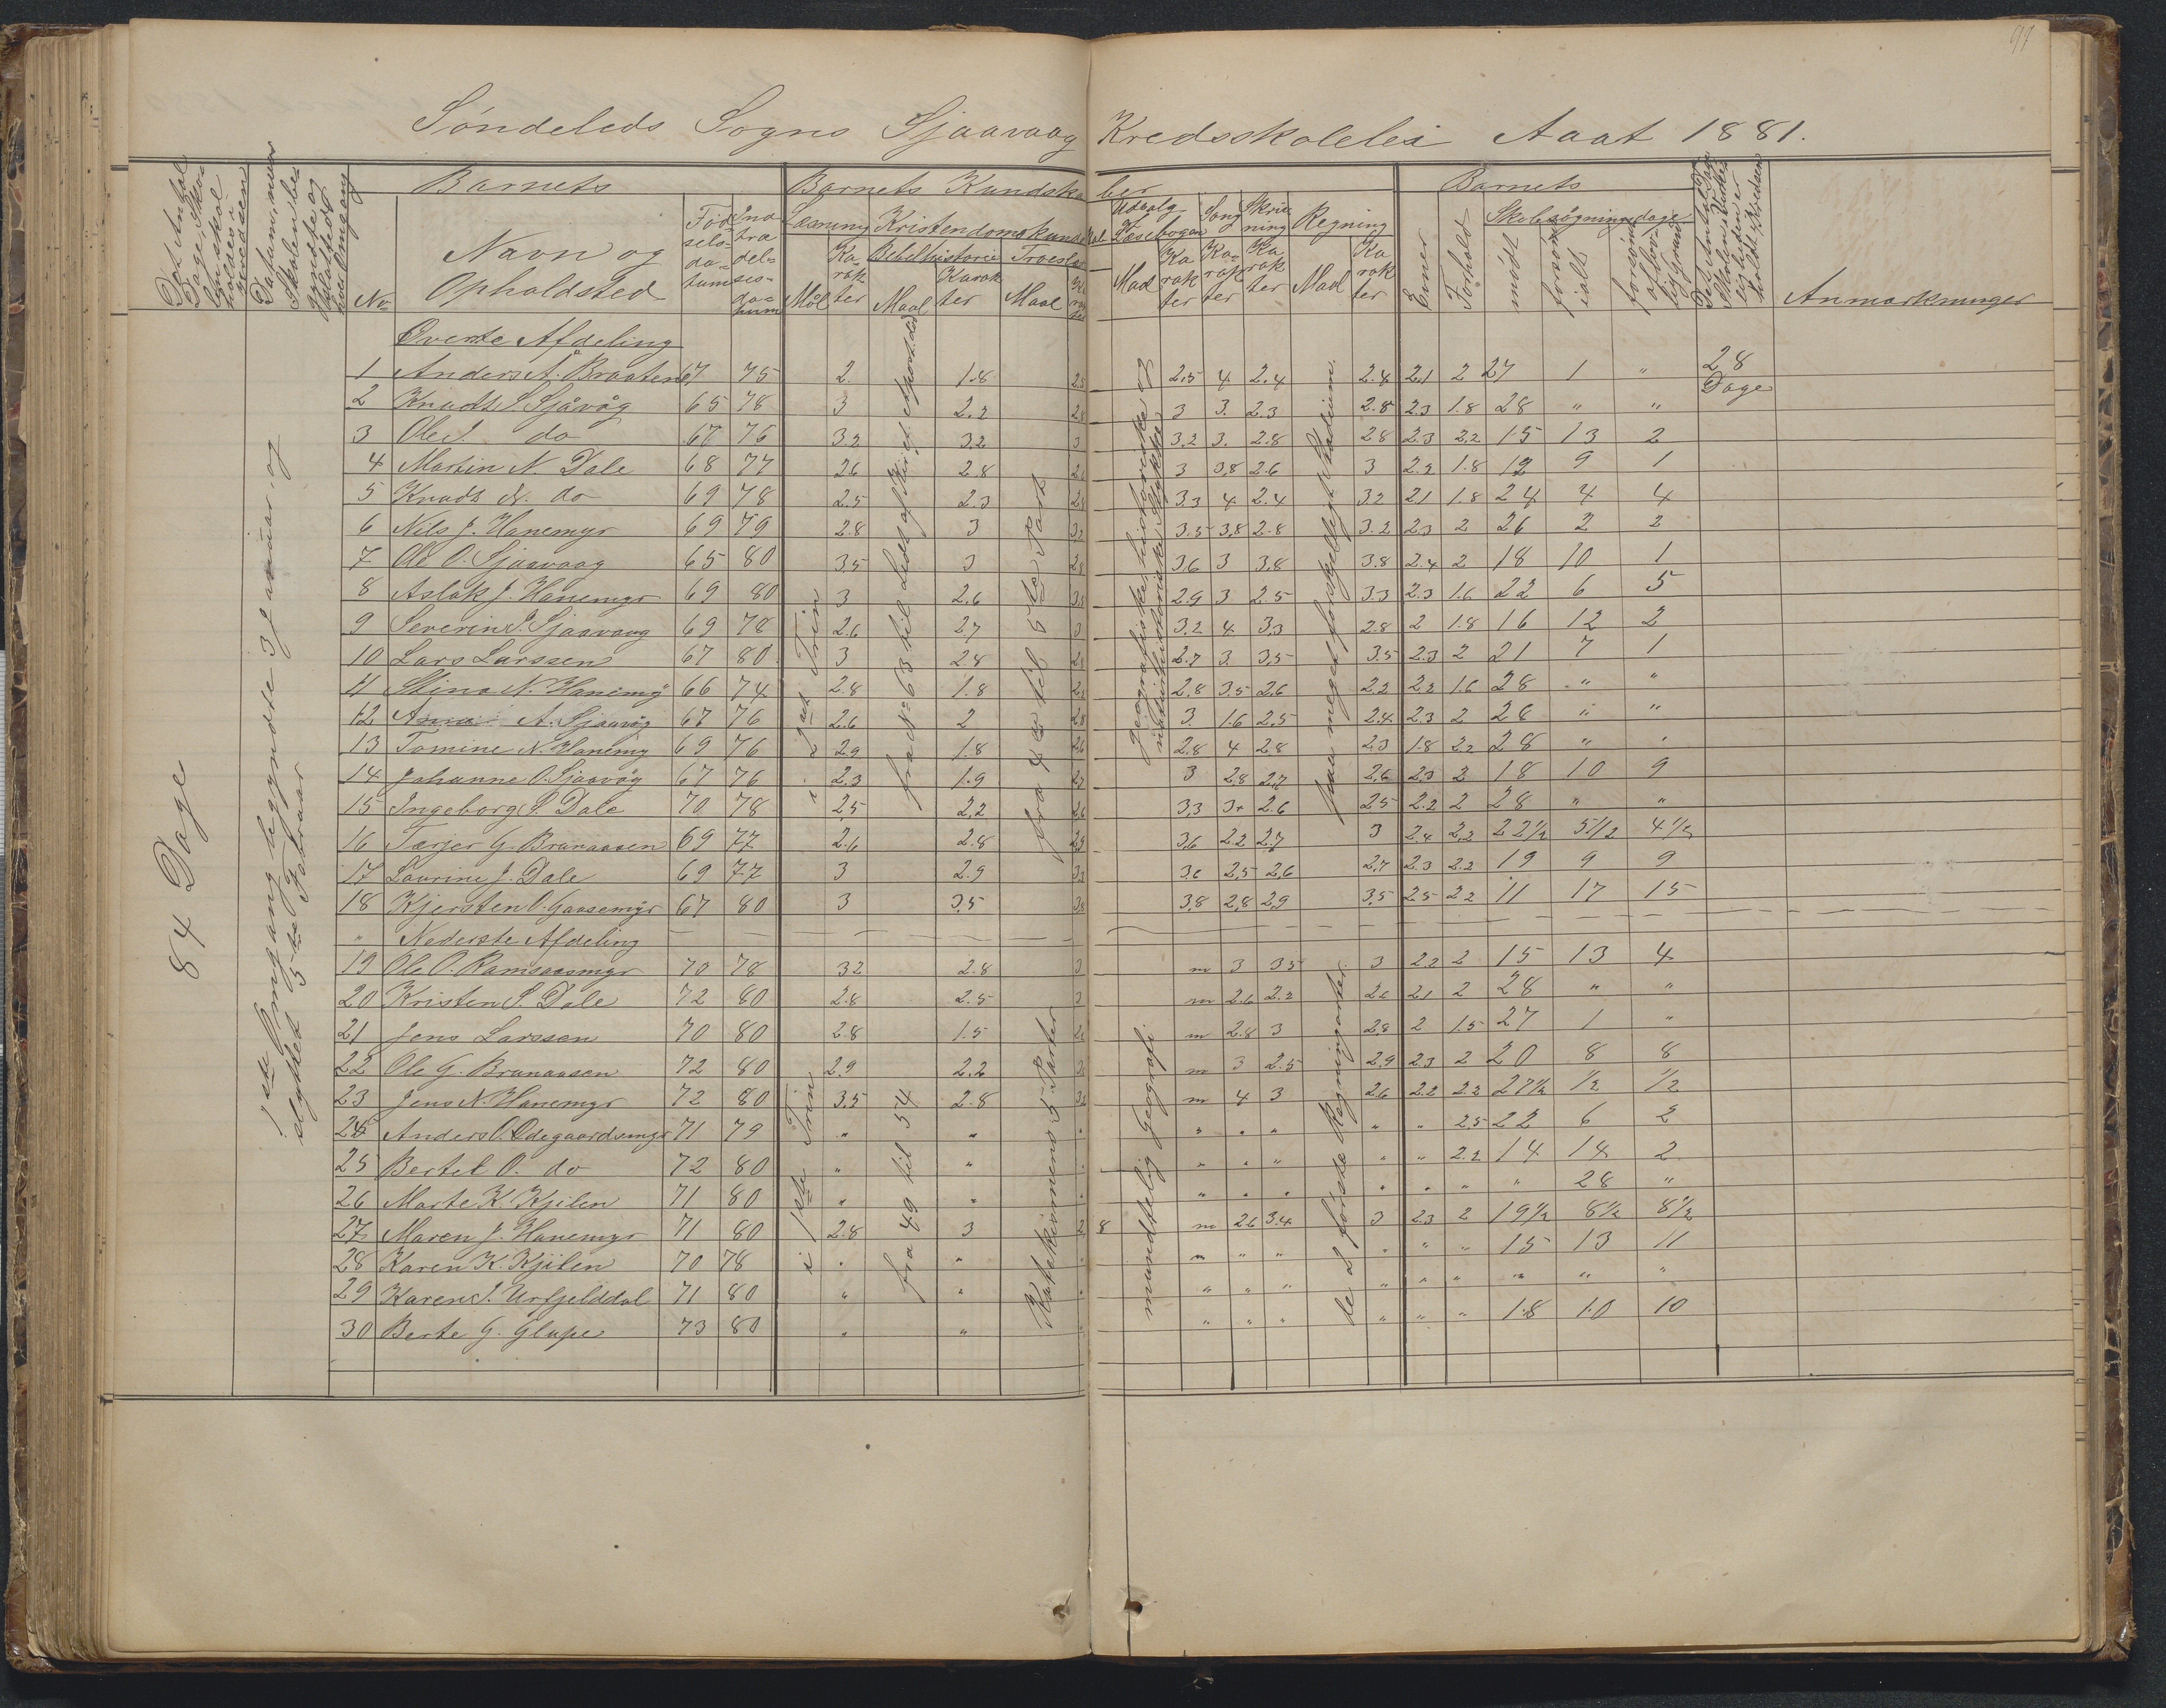 97
Søndeleds Sogns Sjaavaag Kredsskole i Aaat 1881.
Det Antal Dage, Skolen skal holdes i Kredsen
Datum, naar Skolen begyndte og sluttede hver Omgang
No
Barnets
Navn og Opholdsted
Fødselsdatum
Indtrædelsesdatum
Barnets Kundskaber
Læsning
Mål
Karakter
Kristendomskundskab
Bibelhistorie
Maal
Karakter
Troeslære
Maal
Udvalg Læsebogen
Maal
Karakter
Sang
Karakter
Skrivning
Karakter
Regning
Maal
Karakter
Barnets
Evner
Forhold
Skolesøgningsdage
mødt
forsømt ialt
forsømt af lovlig Grund
Det Antal Dage Skolen i Virkeligheden er holdt i Kredsen
Anmærkninger
84 Dage
1ste Omgang begyndte 3 Januar og
slyttet 5te Februar
Øverste Afdeling
i 2det Trin
fra No 63 til
fra 4de til 5te Part
geografiske, historiske og
naturhistoriske Stykker
paa meget forskjelligt Stadium.
1 Anders A. Braaten 67 75 2. 1.8 2.5 2.5 4 2.4 2.8 2.1 2 27 1 " 28 Dage
2 Knudt S. Sjåvåg 65 78 3 2.2 2.8 3 3. 2.3 2.8 2.3 1.8 28 " "
3 Ole S. do 67 76 3.2 3.2 3 3.2 3. 2.8 2.8 2.3 2.2 15 13 2
4 Martin N. Dale 68 77 2.6 2.8 2.6 3 3.8 2.6 3 2.2 1.8 12 9 1
5 Knudt N. do 69 78 2.5 2.3 2.8 3.3 4 2.4 3.2 2.1 1.8 24 4 4
6 Nils J. Hanemyr 69 79 2.8 3 3.2 3.5 3.8 2.8 3.2 2.3 2 26 2 2
7 Ole O. Sjaavaag 65 80 3.5 3 2.8 3.6 3 3.8 3.8 2.4 2 18 10 1
8 Aslak J. Hanemyr 69 80 3 2.6 3.5 2.9 3 2.5 3.3 2.3 1.6 22 6 5
9 Severin S. Sjaavaag 69 78 2.6 2.7 3 3.2 4 3.3 2.8 2 1.8 16 12 2
10 Lars Larssen 67 80 3 2.8 2.8 2.7 3. 3.5 3.5 2.3 2 21 7 1
11 Stina N. Hanemy 66 74 2.8 1.8 2.2 2.8 3.5 2.6 2.2 2.2 1.6 28 " "
12 Anna A. Sjaavåg 67 76 2.6 2 2.8 3. 1.6 2.5 2.4 2.3 2 28 " "
13 Tomine N. Hanemy 69 76 2.9 1.8 2.6 2.8 4 2.8 2.3 1.8 2.2 28 " "
14 Johanne O. Sjaavåg 67 76 2.3 1.9 2.7 3 2.8 2.7 2.6 2.3 2 18 10 9
15 Ingeborg S. Dale 70 78 2.5 2.2 2.6 3.3 3. 2.6 2.5 2.2 2 28 " "
16 Tærjer G. Brunaasen 69 77 2.6 2.8 2.9 3.6 2.2 2.7 3 2.4 2.2 22½ 5½ 4½
17 Laurine J. Dale 69 77 3 2.9 3.2 3.6 2.5 2.6 2.7 2.3 2.2 19 9 9
18 Kjersten O. Gaasemyr 67 80 3 3.5 3.8 3.8 2.8 2.9 3.5 2.5 2.2 11 17 15
" Nederste Afdeling
i 1ste Trin
fra 49 til 54
Katekismens 5 Parter
mundtelig Geografi
de 2 første Regningsarter
19 Ole O. Ramsaasmyr 70 78 3.2 2.8 3 m 3 3.5 3 2.2 2 15 13 4
20 Kristen S. Dale 72 80 2.8 2.5 3 m 2.6 2.2 2.6 2.1 2 28 " "
21 Jens Larssen 70 80 2.8 1.5 2.6 m 2.8 3 2.8 2 1.5 27 1 "
22 Ole G. Brunaasen 72 80 2.9 2.2 m 3 2.5 2.9 2.3 2 20 8 8
23 Jens N. Hanemyr 72 80 3.5 2.8 m 4 3 2.6 2.2 2.2 27½ ½ ½
24 Anders O. Ødegaardsmyr 71 79 " " " " " " " " 2.5 22 6 2
25 Bertel O. do 72 80 " " " " " " " " 2.2 14 14 2
26 Marte K. Kjilen 71 80 " " " " " " " " " " 28 "
27 Maren J. Hanemyr 71 80 2.8 3 2 8 m 2.6 3.4 3 2.3 2 19½ 8½ 8½
28 Karen K. Kjilen 70 78 " " " " " " " " " 15 13 11
29 Karen S. Urfjelddal 71 80 " " " " " " " " " " " "
30 Berte G. Glupe 73 80 " " " " " " " " " 18 10 10